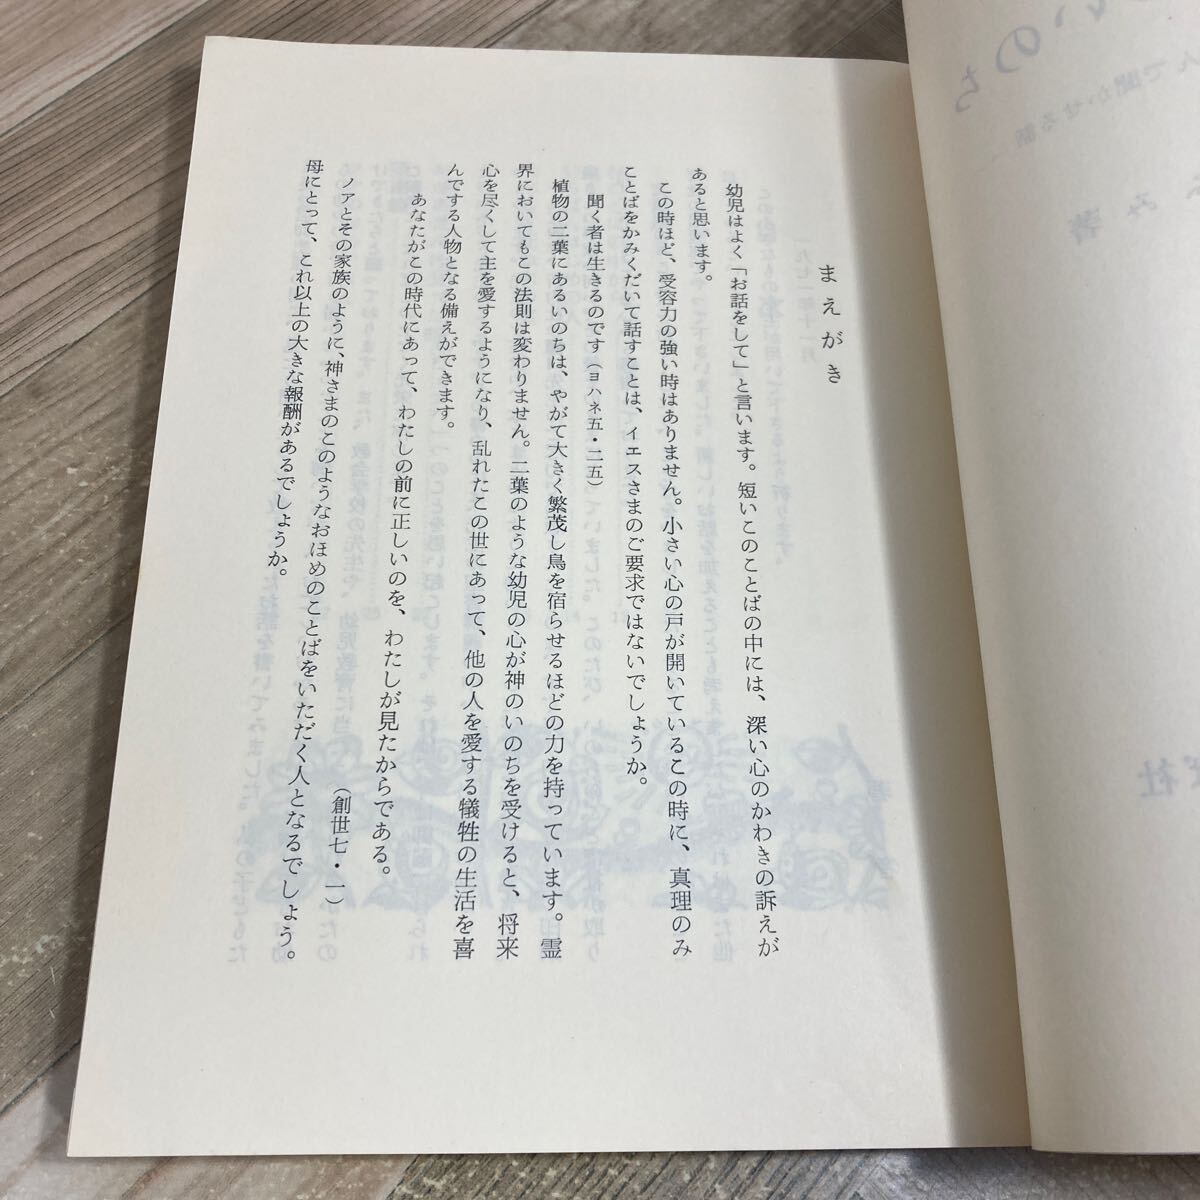 まえがき
幼児はよく「お話をして」と言います。短いこのことばの中には、深い心のかわきの訴えが
あると思います。
この時ほど、受容力の強い時はありません。小さい心の戸が開いているこの時に、真理のみ
ことばをかみくだいて話すことは、イエスさまのご要求ではないでしょうか。
聞く者は生きるのです(ヨハネ五・二五)
植物の二葉にあるいのちは、やがて大きく繁茂し鳥を宿らせるほどの力を持っています。霊
界においてもこの法則は変わりません。二葉のような幼児の心が神のいのちを受けると、将来
心を尽くして主を愛するようになり、乱れたこの世にあって、他の人を愛する犠牲の生活を喜
んでする人物となる備えができます。
あなたがこの時代にあって、わたしの前に正しいのを、わたしが見たからである。
(創世七・一)
ノアとその家族のように、神さまのこのようなおほめのことばをいただく人となるでしょう。
母にとって、これ以上の大きな報酬があるでしょうか。